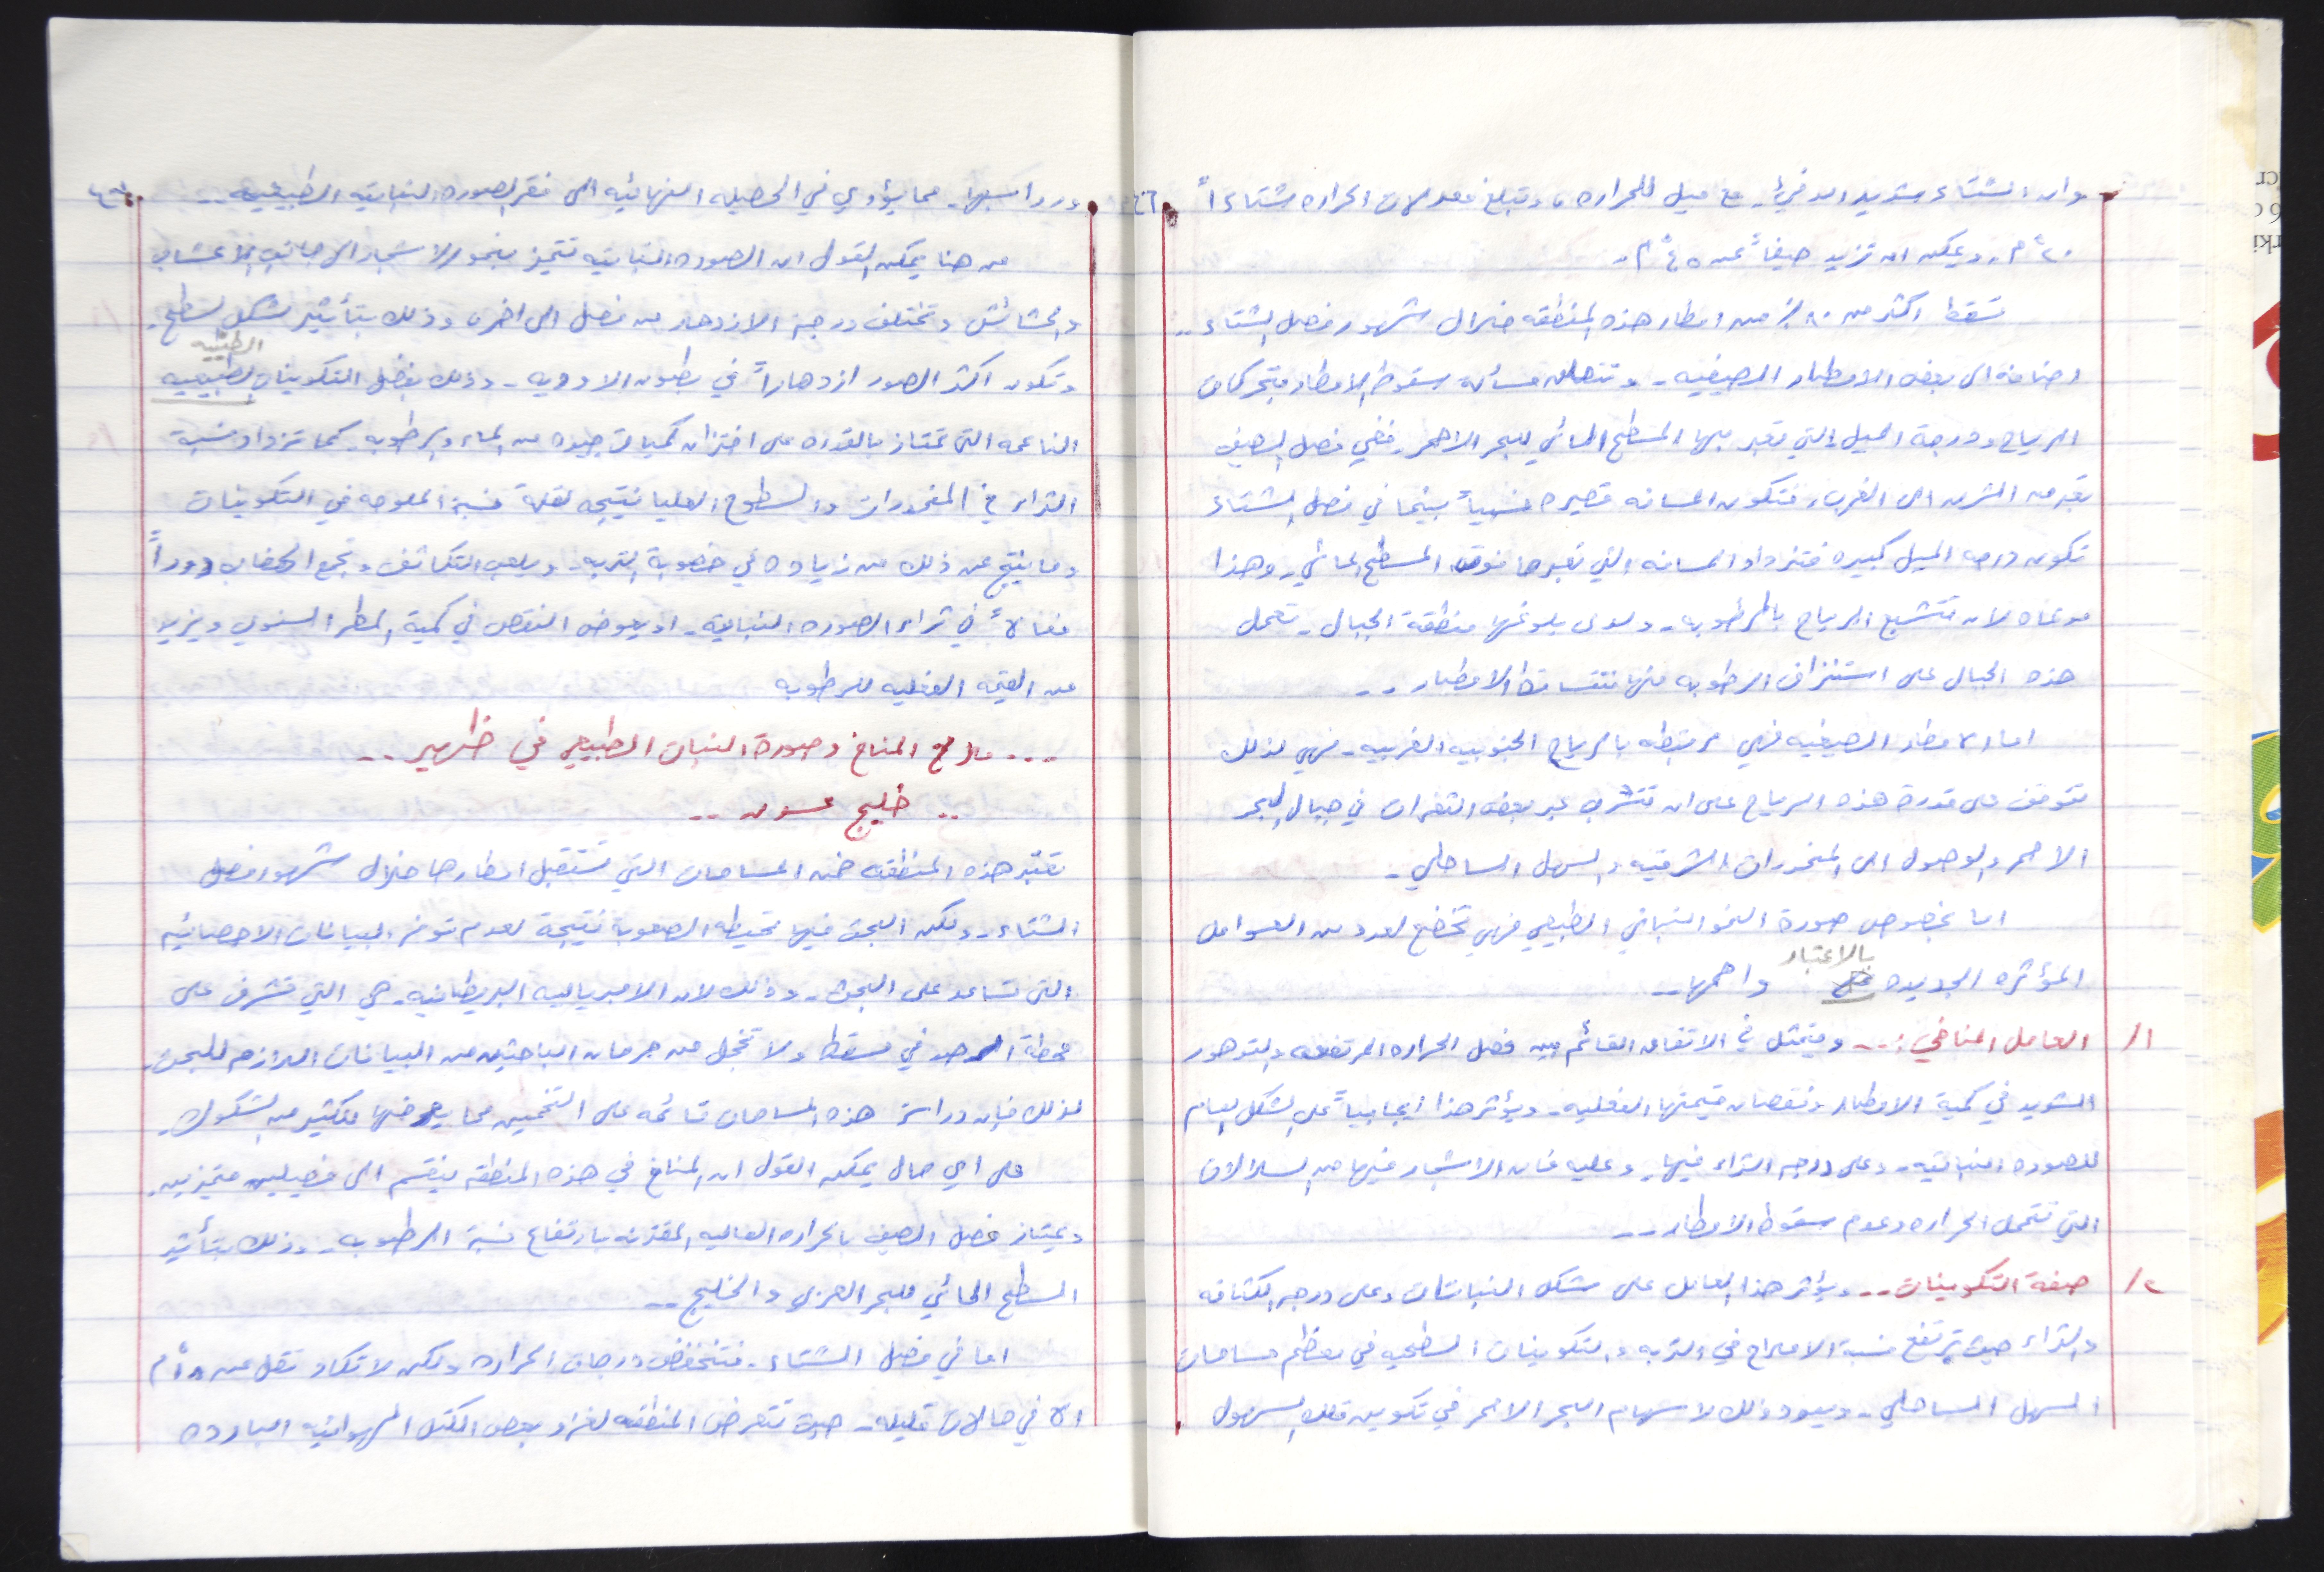 وان الشتاء شديد الدفيء. مع ميل للحراره، وتبلغ معدلات الحراره شتاءاً
٢٠°م. ويمكن ان تزيد صيفاً عن ٤٥°م.
تسقط اكثر من ٨٠٪ من امطار هذه المنطقه خلال شهور فصل الشتاء..
اضافة الى بعض الامطار الصيفيه. وتتعلق مسألة سقوط الامطار بتحركات
الرياح ودرجة الميل التي تعبر بها المسطح المائي للبحر الاحمر. ففي فصل الصيف
تعبر من الشرق الى الغرب، فتكون المسافه قصيره نسبياً بينما في فصل الشتاء
تكون درجة الميل كبيره فتزداد المسافه التي تعبرها فوق المسطح المائي. وهذا
مدعاه لان تتشبع الرياح بالرطوبه. ولدى بلوغها منطقة الجبال. تعمل
هذه الجبال على استنزاف الرطوبه منها فتتساقط الامطار..
اما الامطار الصيفيه فهي مرتبطه بالرياح الجنوبيه الغربيه. فهي لذلك
تتوقف على قدرة هذه الرياح على ان تتسرب عبر بعض الثغرات في جبال البحر
الاحمر والوصول الى المنحدرات الشرقيه والسهل الساحلي.
اما بخصوص صورة النمو النباتي الطبيعي فهي تخضع لعدد من العوامل
المؤثره الجديره بالاعتبار واهمها..
١/ العامل المناخي:.. ويتمثل في الاتفاق القائم بين فصل الحراره المرتفعه والتدهور
الشديد في كمية الامطار ونقصان قيمتها الفعليه. ويؤثر هذا ايجابياً على الشكل العام
للصوره النباتيه. وعلى درجه الثراء فيها. وعليه فان الاشجار فيها من السلالات
التي تتحمل الحراره وعدم سقوط الامطار..
٢/ صفة التكوينات.. ويؤثر هذا العامل على شكل النباتات وعلى درجة الكثافه
والثراء حيث ترتفع نسبة الاملاح في التربه والتكوينات السطحيه في معظم مساحات
السهل الساحلي. ويعود ذلك لاسهام البحر الاحمر في تكوين تلك السهول
ورواسبها. مما يؤدي في الحصيله النهائيه الى فقر الصوره النباتيه الطبيعيه..
من هنا يمكن القول ان الصوره النباتيه تتميز بنمو الاشجار الى جانب الاعشاب
والحشائش وتختلف درجة الازدهار من فصل الى اخر، وذلك بتأثير شكل السطح.
وتكون اكثر الصور ازدهاراً في بطون الاوديه. وذلك بفضل التكوينات الطبيعيه الطينيه
الناعمه التي تمتاز بالقدره على اختزان كميات جيده من الماء والرطوبه. كما تزداد نسبة
الثراء في المنحدرات والسطوح العليا نتيجه لقلة نسبة الملوحه في التكوينات
وما ينتج عن ذلك من زياده في خصوبة التربه. ويلعب التكاثف وتجمع الضباب دوراً
فعالاً في ثراء الصوره النباتيه. اذ يعوض النقص في كمية المطر السنوي ويزيد
من القيمه الفعليه للرطوبه
... ملامح المناخ وصورة النبات الطبيعي في ظهير..
.. خليج عمان..
تعتبر هذه المنطقه ضمن المساحات التي تستقبل امطارها خلال شهور فصل
الشتاء. ولكن البحث فيها تحيطه الصعوبة نتيجة لعدم توفر البيانات الاحصائيه
التي تساعد على البحث. وذلك لان الامبرياليه البريطانيه. هي التي تشرف على
محطة الرصد في مسقط ولا تخجل من حرمان الباحثين من البيانات اللازمه للبحث.
لذلك فإن دراسة هذه المساحات قائمه على التخمين مما يعرضها للكثير من الشكوك.
على اي حال يمكن القول ان المناخ في هذه المنطقه ينقسم الى فصلين متميزين.
ويمتاز فصل الصيف بالحراره العاليه المقترنه بارتفاع نسبة الرطوبه. وذلك بتأثير
السطح المائي للبحر العربي والخليج..
اما في فصل الشتاء. فتنخفض درجات الحراره ولكن لا تكاد تقل عن ١٨°م
الا في حالات قليله. حيث تتعرض المنطقه لغزو بعض الكتل الهوائيه البارده